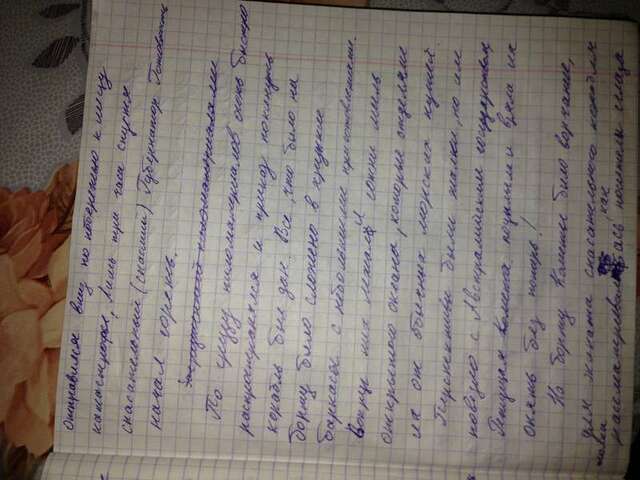 отправился вниз по побережью к месту
катастрофы, Лишь три часа спустя
спасательный (спасший) Губернатор Готовность
начал гореть.
Загруженный пиломатериалами
По грузу пиломатериалов огонь быстро
распространялся и приказ покинуть
корабль был дан. Все, что было на
борту было сложено в хрупкие
баркасы с небольшими приготовлениями.
Вокруг них лежали сотни миль
открытого океана, которые отделяли
их от обычных морских путей
Перспективы были жалки, но им
повезло с Австралийским государством,
Летущая Комета подплыла и взяла их
опять без потерь!
На борту Кометы было ворчание,
для экипажа спасательного корабля
рассматривалась, как носитель сглаза